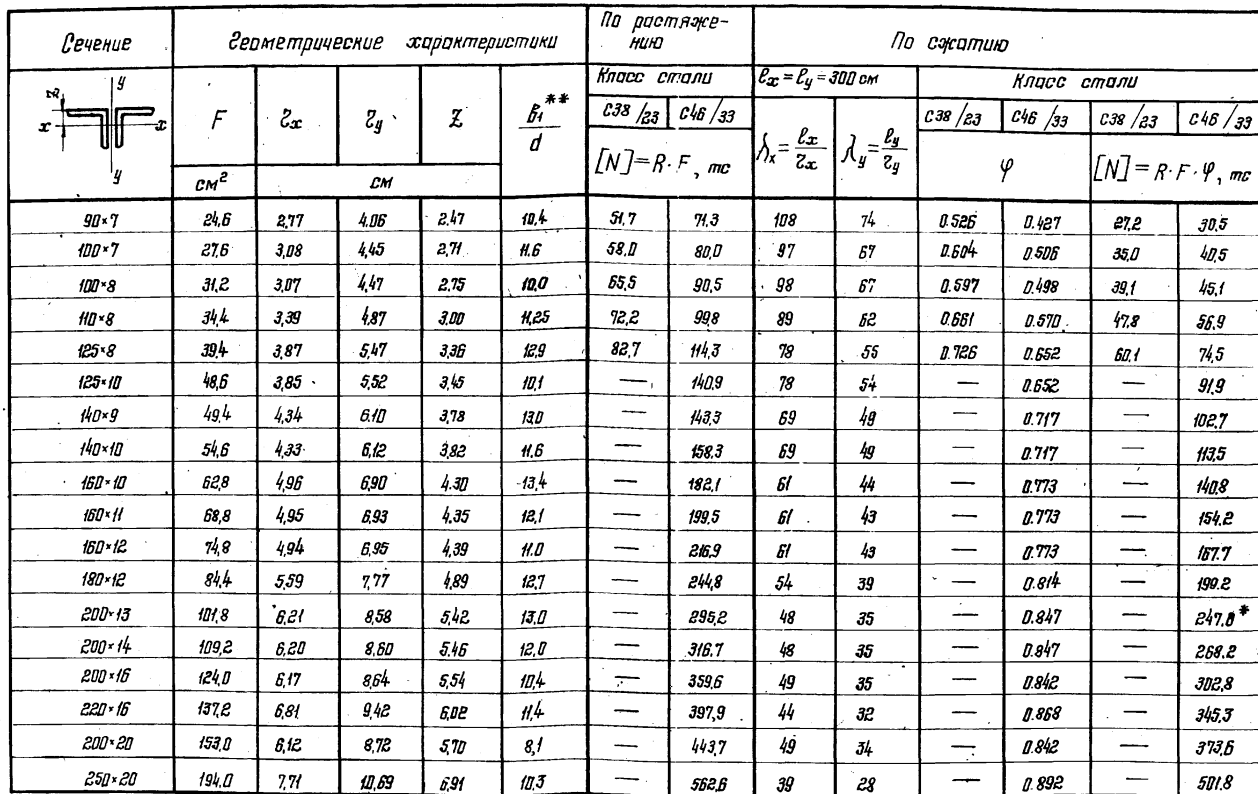 Сечение Геометрические характеристики По растяже-нию По сжатию
Класс стали ℓx = ℓy = 300 см Класс стали
x x y y z
F ꚍx ꚍy Z b₁**/d С38/23 С46/33 λx = ℓx/ꚍx λy = ℓy/ꚍy С38/23 С46/33 С38/23 С46/33
см² см [N] = R·F, тс φ [N] = R·F·φ, тс
90×7 24,6 2,77 4,06 2,47 10,4 51,7 71,3 108 74 0.526 0.427 27,2 30,5
100×7 27,6 3,08 4,45 2,71 11.6 58,0 80,0 97 67 0.604 0.506 35,0 40,5
100×8 31,2 3,07 4,47 2,75 10,0 65,5 90,5 98 67 0.597 0.498 39,1 45,1
110×8 34,4 3,39 4,87 3,00 11,25 72,2 99,8 89 62 0.661 0.570 47,8 56,9
125×8 39,4 3,87 5,47 3,36 12,9 82,7 114,3 78 55 0.726 0.652 60,1 74,5
125×10 48,6 3,85 5,52 3,45 10,1 — 140,9 78 54 — 0.652 — 91,9
140×9 49,4 4,34 6.10 3,78 13,0 — 143,3 69 49 — 0.717 — 102,7
140×10 54,6 4,33 6,12 3,82 11,6 — 158,3 69 49 — 0.717 — 113,5
160×10 62,8 4,96 6,90 4.30 13,4 — 182,1 61 44 — 0.773 — 140,8
160×11 68,8 4,95 6,93 4,35 12,1 — 199,5 61 43 — 0.773 — 154,2
160×12 74,8 4,94 6,95 4,39 11.0 — 216,9 61 43 — 0.773 — 167,7
180×12 84,4 5,59 7,77 4,89 12,7 — 244,8 54 39 — 0.814 — 199.2
200×13 101,8 6,21 8,58 5,42 13,0 — 295,2 48 35 — 0.847 — 247,8*
200×14 109,2 6,20 8,60 5,46 12,0 — 316.7 48 35 — 0.847 — 268,2
200×16 124,0 6,17 8,64 5,54 10,4 — 359,6 49 35 — 0.842 — 302,8
220×16 137,2 6,81 9,42 6,02 11,4 — 397,9 44 32 — 0.868 — 345,3
200×20 153,0 6,12 8,72 5,70 8,1 — 443,7 49 34 — 0.842 — 373,6
250×20 194,0 7,71 10,69 6,91 10,3 — 562,6 39 28 — 0.892 — 501.8